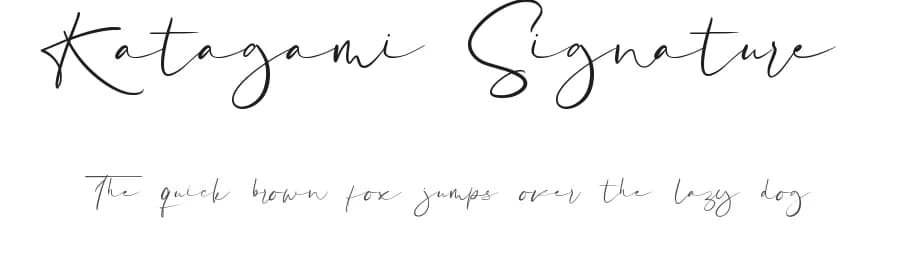 Katagami Signature
The quick brown fox jumps over the lazy dog